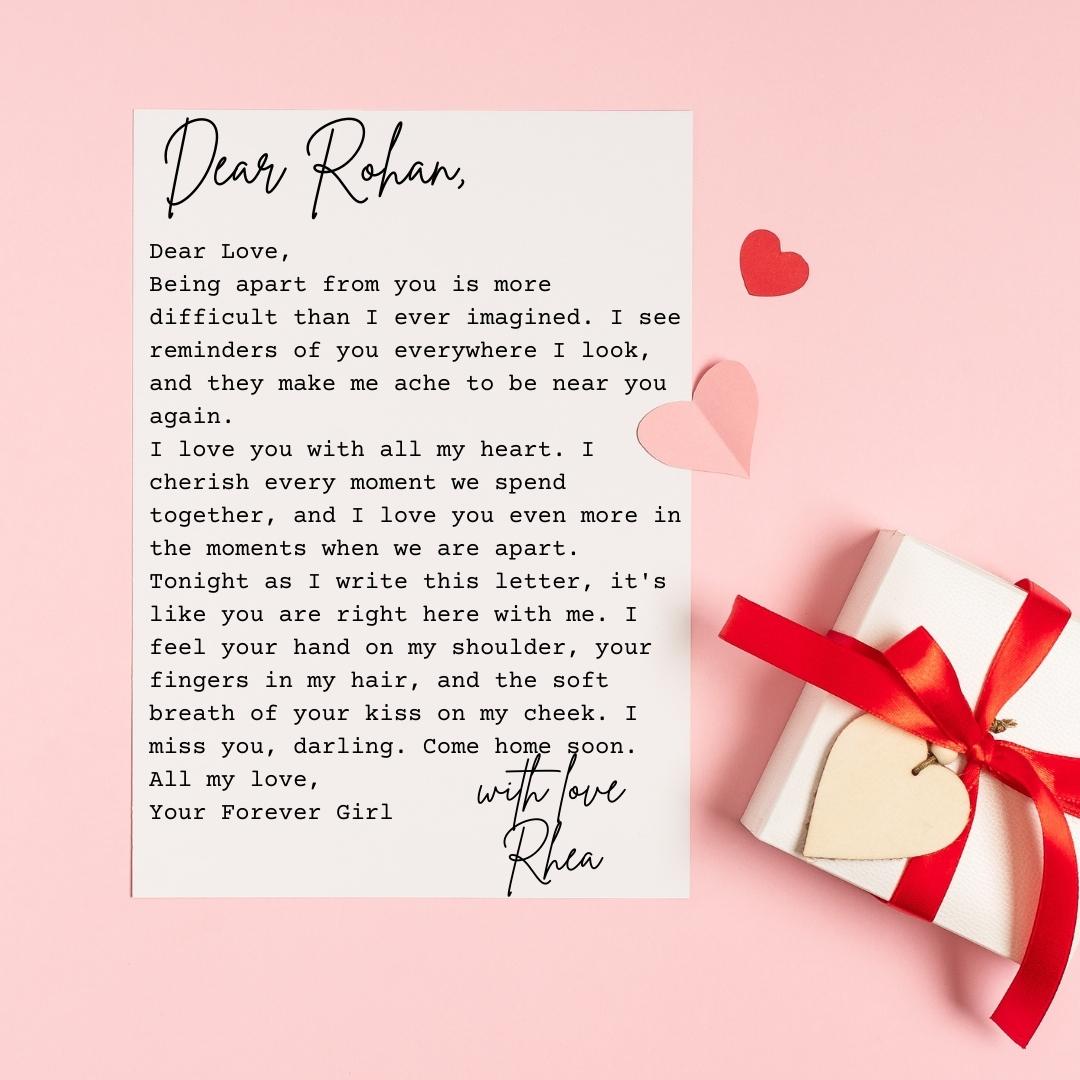 Dear Rohan,
Dear Love,
Being apart from you is more
difficult than I ever imagined. I see
reminders of you everywhere I look,
and they make me ache to be near you
again.
I love you with all my heart. I
cherish every moment we spend
together, and I love you even more in
the moments when we are apart.
Tonight as I write this letter, it's
like you are right here with me. I
feel your hand on my shoulder, your
fingers in my hair, and the soft
breath of your kiss on my cheek. I
miss you, darling. Come home soon.
All my love,
Your Forever Girl
with love
Rhea